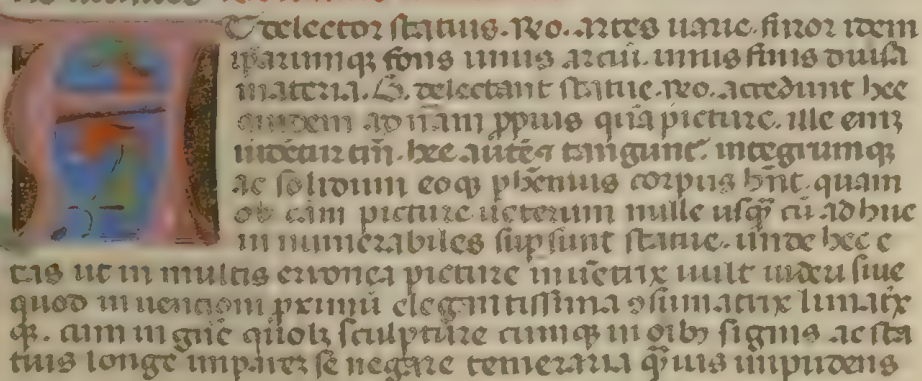 T delector statuis. Ro. Artes uarie. furor idem
iparumq; fons unus artiū. unus finis diuisa
materia. G. delectant statue. Ro. accedunt hee
quidem ad nām ꝓpius quā picture. ille eniȝ
uidētur tm̄. hee autē ⁊ tangunt᷑. integrumq;
ac solidum eoq; phēnius corpus hn̄t. quam
ob cām picture ueterum nulle usq̄ cū adhuc
innumerabiles supsunt statue. unde hec e
tas ut in multis erronea picture inuētrix uult uideri siue
quod inuentioni ꝓximū elegantissima ꝯsumatrix limatx̄
q;. cum in gn̄e quolȝ sculpture cumq; in oibȝ signis ac sta
tuis longe impareȝ se negare temeraria q̄uis impudens